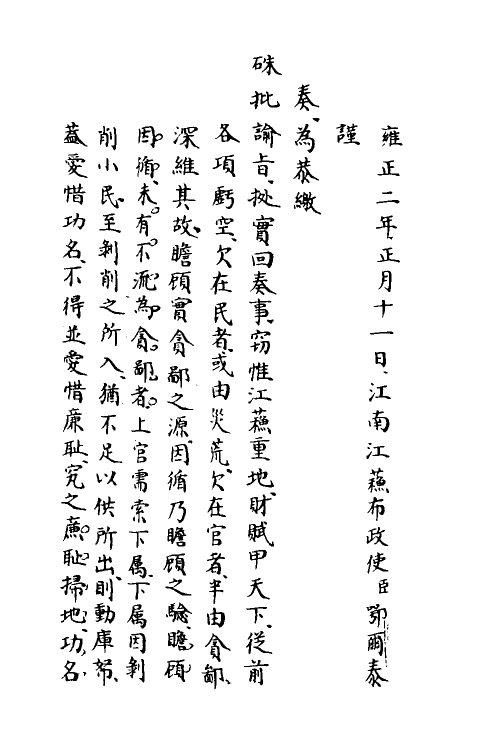 雍正二年正月十一日江南江蘓布政使臣鄂爾泰
謹
奏為恭繳
硃批諭旨㨿實回奏事窃惟江蘓重地財賦甲天下從前
各項虧空欠在民者或由災荒欠在官者半由貪鄙
深維其故瞻顧實貪鄙之源因循乃瞻顧之騐瞻顧
因循未有不流為貪鄙者上官需索下属下属因剝
削小民至剝削之所入猶不足以供所出則動庫帑
葢愛惜功名不得並愛惜廉耻究之廉耻掃地功名